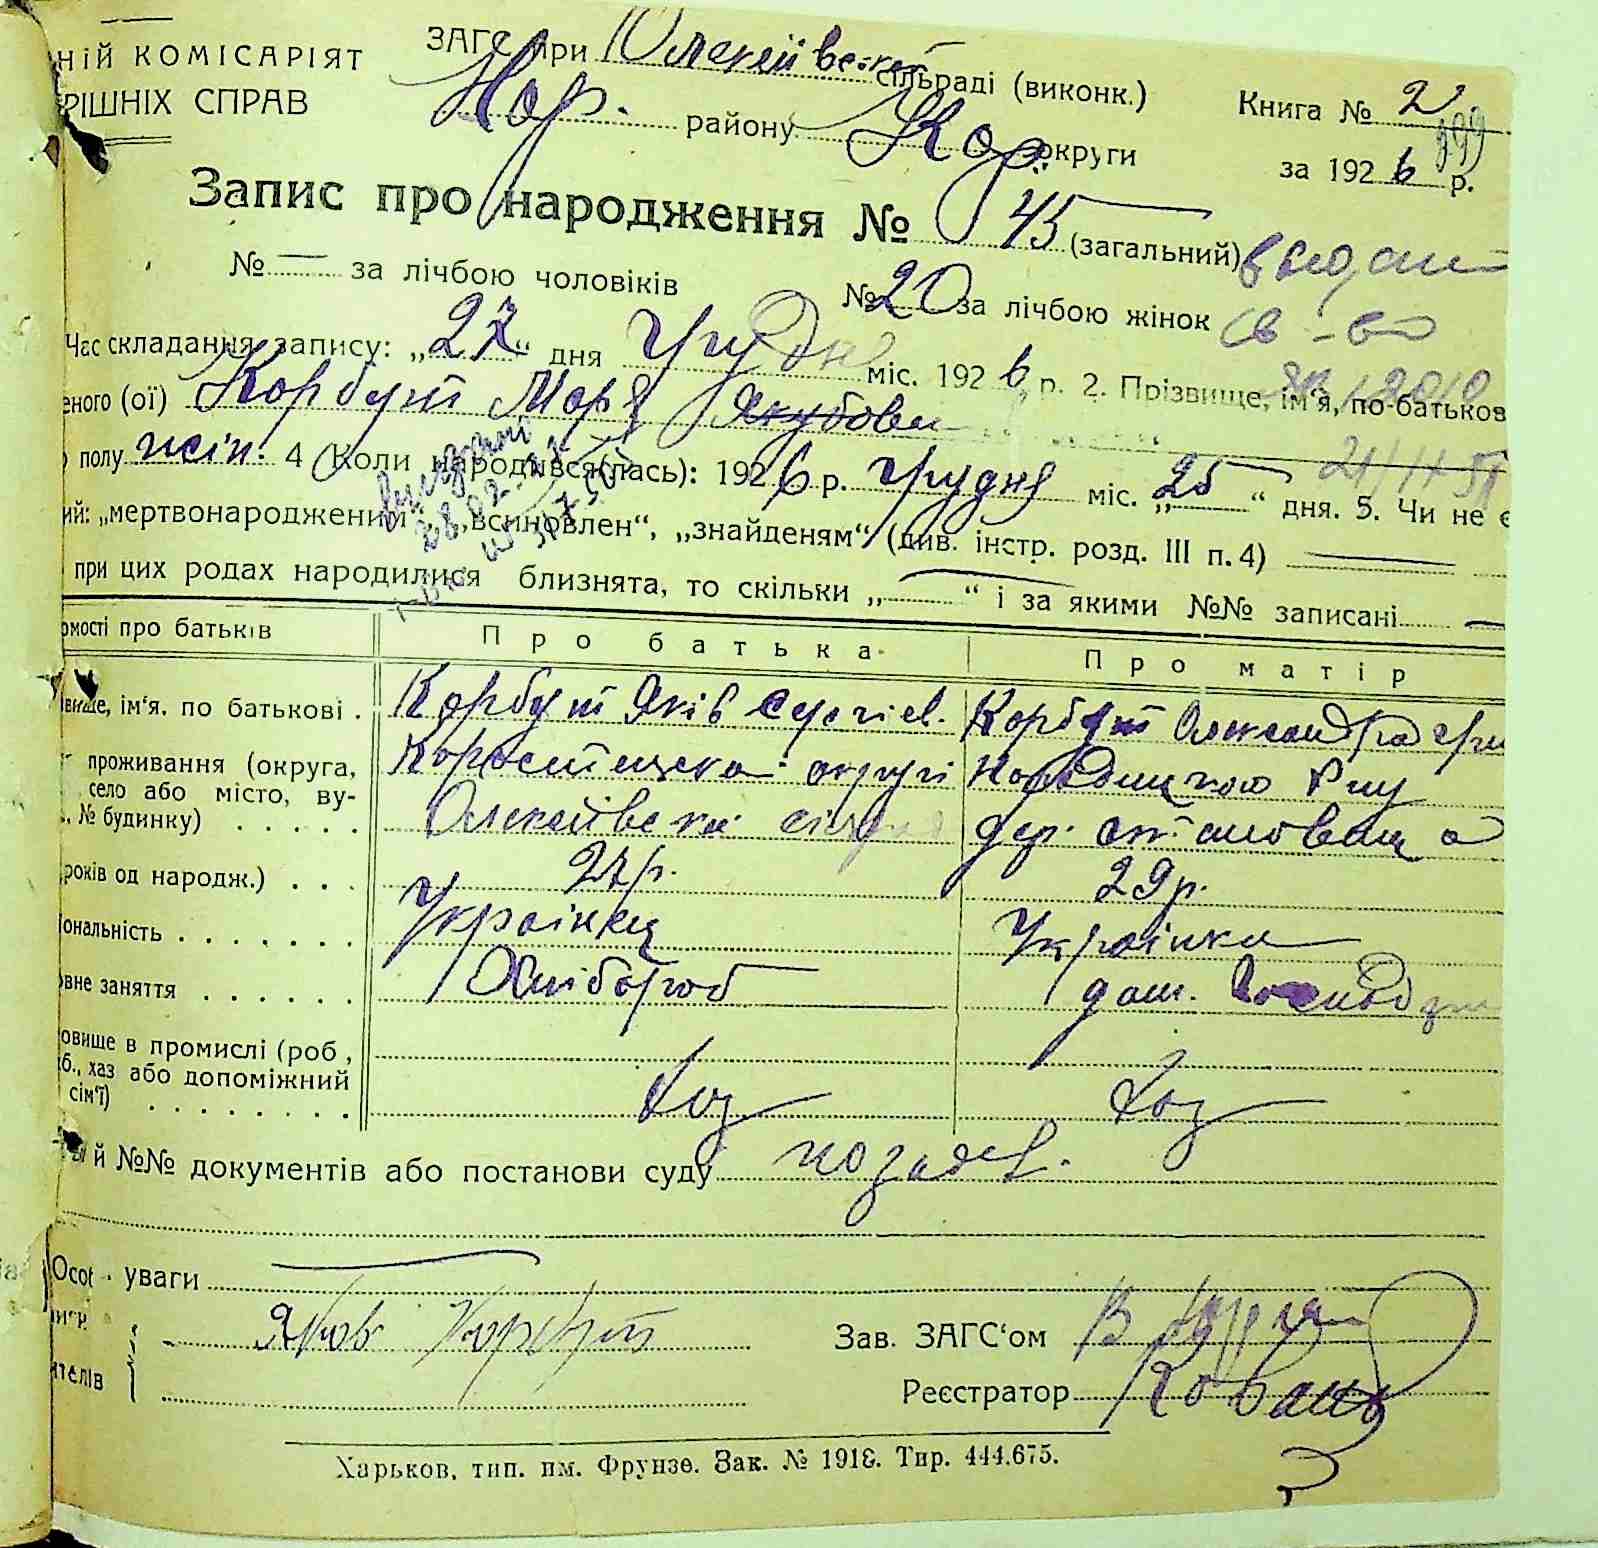 НІЙ КОМІСАРІЯТ
РІШНІХ СПРАВ
ЗАГС при Олексіївськ сільраді (виконк.)
Нор. району Кор. округи
Книга № 2
за 1926 р.
Запис про народження № 45 (загальний)
№ — за лічбою чоловіків № 20 за лічбою жінок
Час складання запису: „27“ дня грудня міс. 1926 р. 2. Прізвище, ім'я, по-батькові
еного (ої) Корбут Маря Якубовн
полу жін. 4 Коли народився(лась): 1926 р. грудня міс. „25“ дня. 5. Чи не є
ий: „мертвонародженим“, „всиновлен“, „знайденям“ (див. інстр. розд. III п. 4) —
при цих родах народилися близнята, то скільки „—“ і за якими №№ записані —
омості про батьків Про батька Про матір
вище, ім'я, по батькові . Корбут Яків Сергіев. Корбут Олександра Гри
проживання (округа, Коростенска округі Народицкого Р-ну
село або місто, ву-
., № будинку) . . . . . Олексіївска дер.
років од народж.) . . . 27 р. 29 р.
іональність . . . . . . . Українец Українка
овне заняття . . . . . . Хлібороб дом. господар
овище в промислі (роб.,
б., хаз або допоміжний
сім'ї) . . . . . . . . Хоз Хоз
й №№ документів або постанови суду по заяв.
Осоt · уваги —
Яков Корбут
ителів
Зав. ЗАГС'ом
Реєстратор Коваль
Харьков, тип. им. Фрунзе. Зак. № 1918. Тир. 444.675.